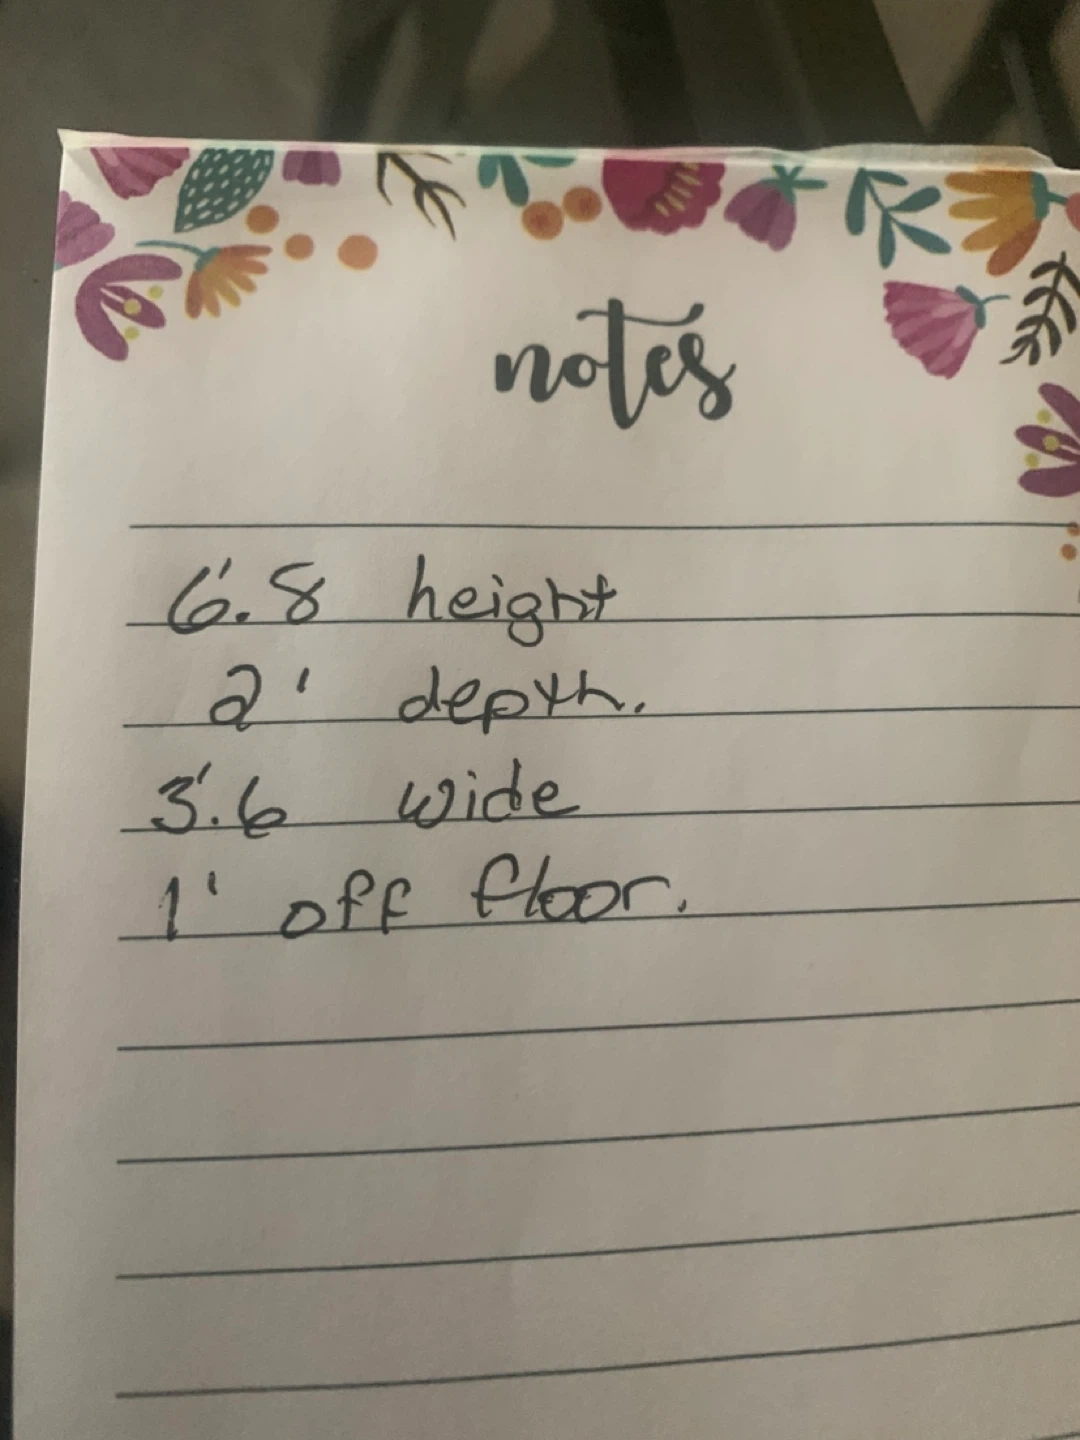 notes
6'.8 height
2' depth.
3'.6 wide
1' off floor.